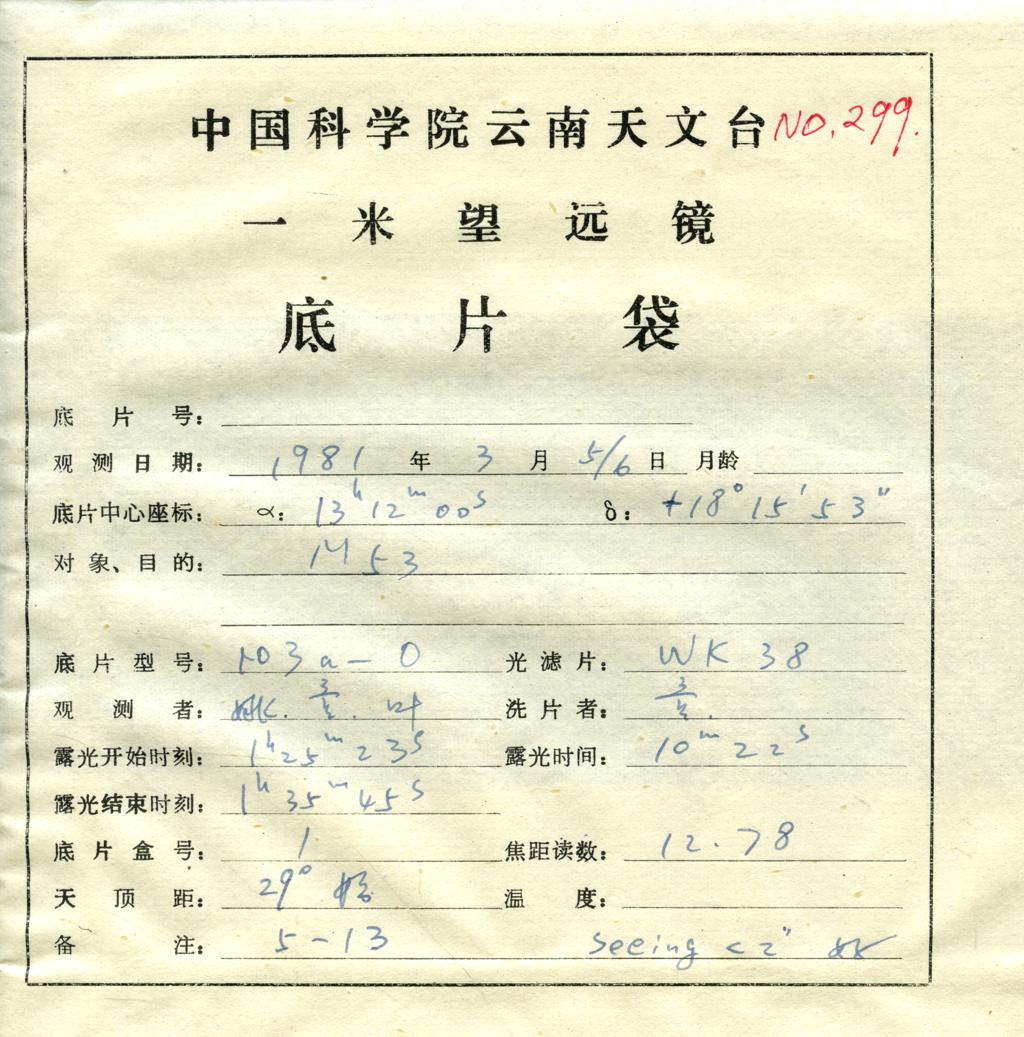 中国科学院云南天文台 NO.299.
一米望远镜
底片袋
底片号:
观测日期: 1981 年 3 月 5/6 日 月龄
底片中心座标: α: 13h12m00s δ: +18°15′53″
对象、目的: M53
底片型号: 103a-O 光滤片: WK 38
观测者: 姚. . 叶 洗片者:
露光开始时刻: 1h25m23s 露光时间: 10m22s
露光结束时刻: 1h35m45s
底片盒号: 1 焦距读数: 12.78
天顶距: 29° 温度:
备注: 5-13 seeing <2″ 好